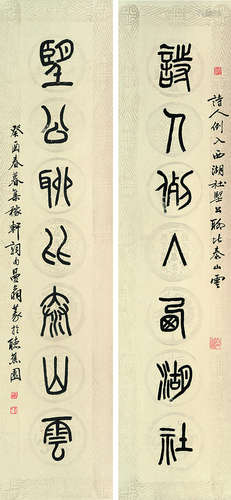 詩人例入西湖社望公聊比泰山雲
詩人例入西湖社
望公聊比泰山雲
癸酉春暮集稼軒詞句曼翁篆於聽蕉園